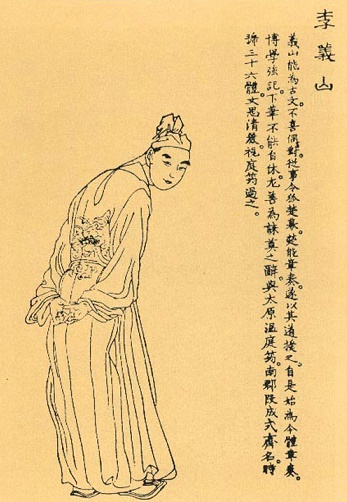 李義山
義山能為古文。不喜偶對。從事令狐楚幕。楚能章奏。遂以其道授之。自是始為今體章奏。
博學強記。下筆不能自休。尤善為誄奠之辭。與太原溫庭筠。南郡段成式齊名。時
號三十六體。文思清麗。視庭筠過之。